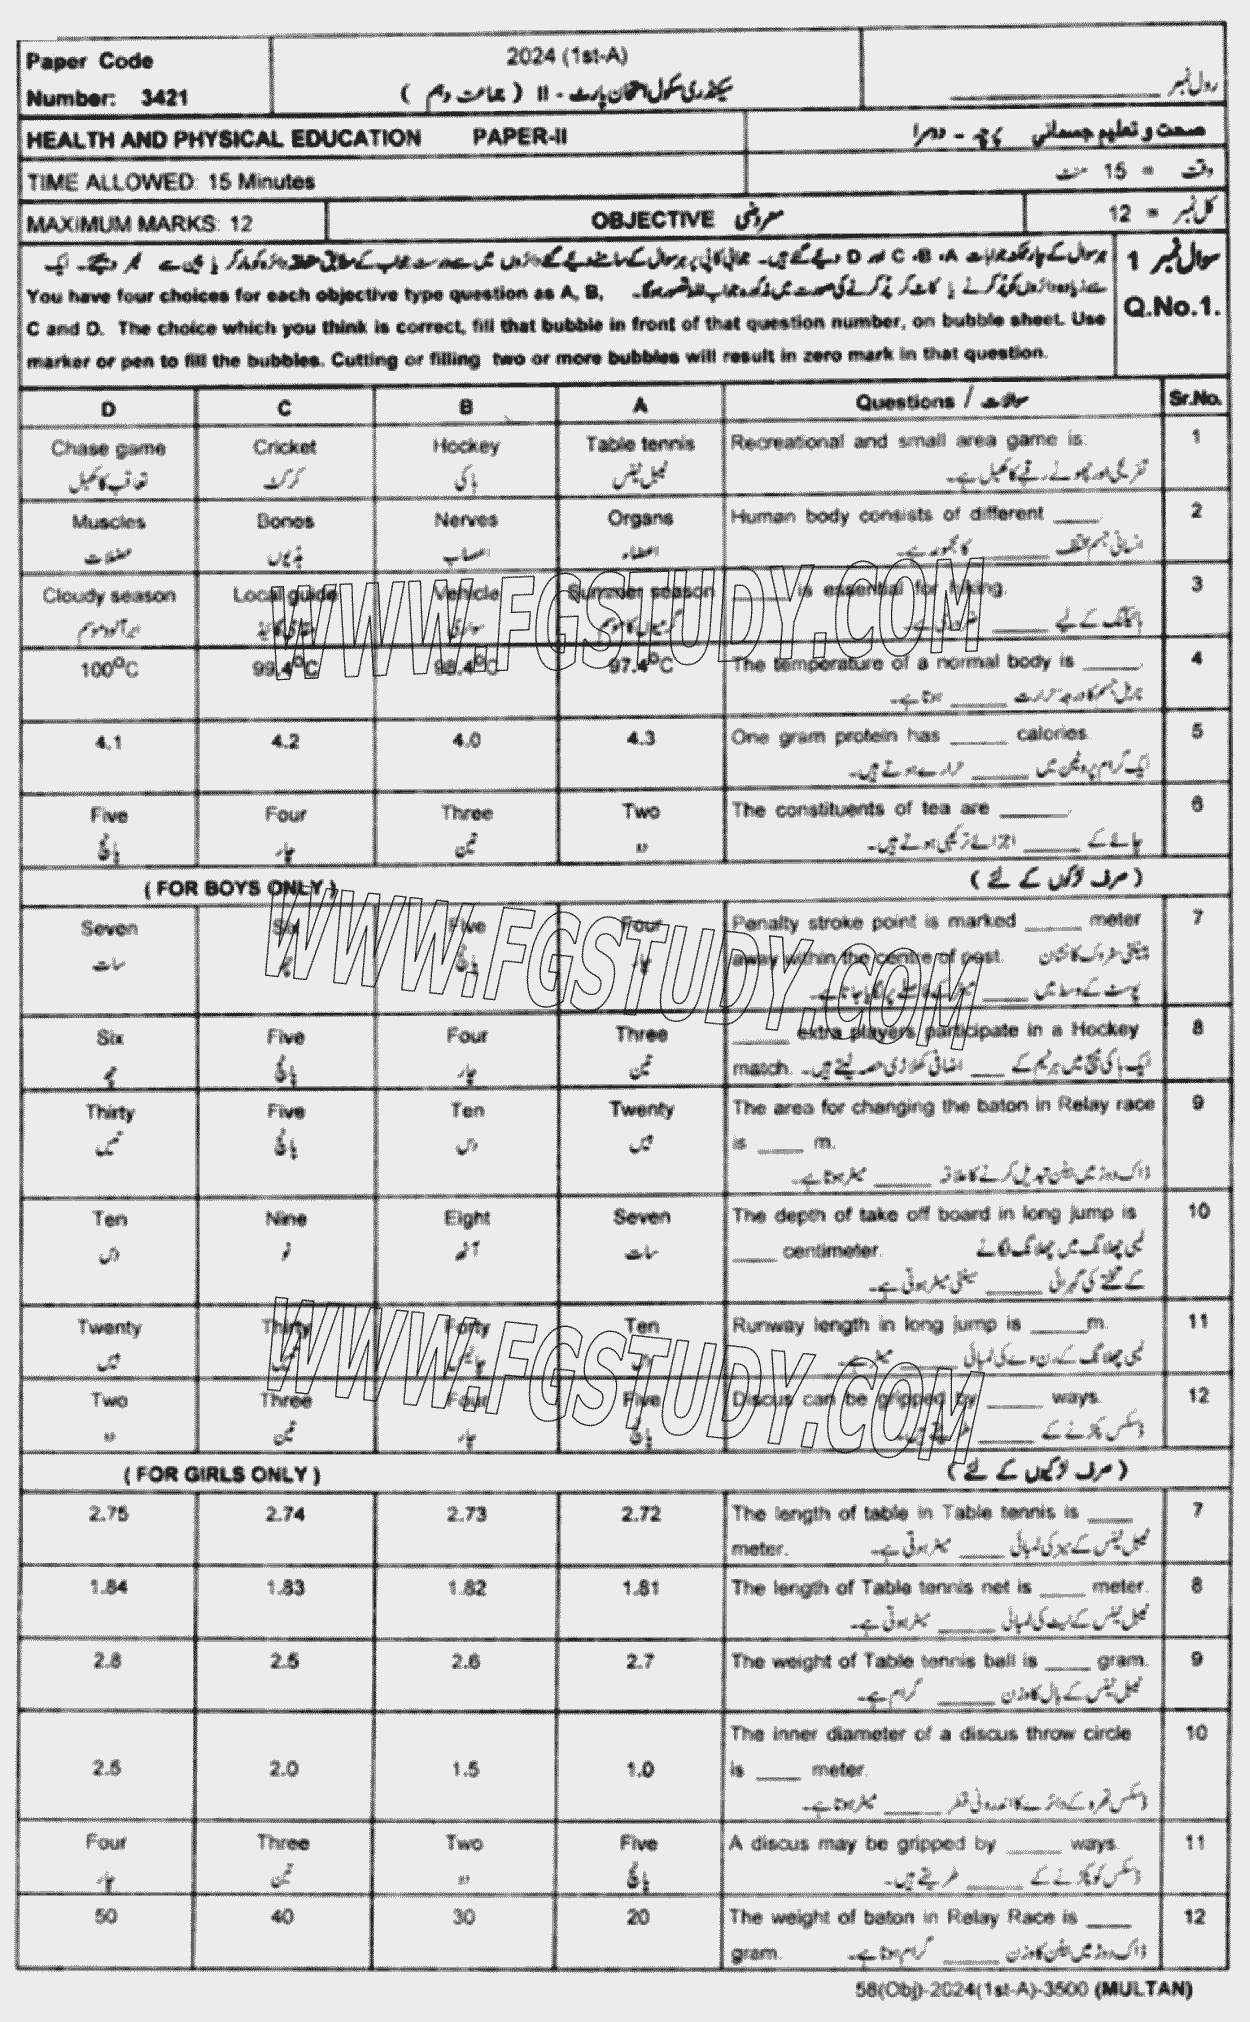 Paper Code
Number: 3421
2024 (1st-A)
سیکنڈری سکول امتحان پارٹ - II ( جماعت دہم )
رول نمبر ____________
HEALTH AND PHYSICAL EDUCATION PAPER-II
صحت و تعلیم جسمانی پرچہ - دوسرا
TIME ALLOWED: 15 Minutes
وقت = 15 منٹ
MAXIMUM MARKS: 12
OBJECTIVE معروضی
کل نمبر = 12
سوال نمبر 1
Q.No.1.
You have four choices for each objective type question as A, B,
C and D. The choice which you think is correct, fill that bubble in front of that question number, on bubble sheet. Use
marker or pen to fill the bubbles. Cutting or filling two or more bubbles will result in zero mark in that question.
D C B A Questions / سوالات Sr.No.
Chase game Cricket Hockey Table tennis Recreational and small area game is: 1
تعاقب کا کھیل کرکٹ ہاکی ٹیبل ٹینس تفریحی اور چھوٹے رقبے کا کھیل ہے۔
Muscles Bones Nerves Organs Human body consists of different ____. 2
عضلات ہڈیوں اعصاب اعضاء انسانی جسم مختلف ____ کا مجموعہ ہے۔
Cloudy season Local guide Vehicle Summer season ____ is essential for hiking. 3
ابر آلود موسم مقامی گائیڈ سواری گرمیوں کا موسم ہائیکنگ کے لیے ____ ضروری ہے۔
100°C 99.4°C 98.4°C 97.4°C The temperature of a normal body is _____. 4
نارمل جسم کا درجہ حرارت _____ ہوتا ہے۔
4.1 4.2 4.0 4.3 One gram protein has _____ calories. 5
ایک گرام پروٹین میں _____ حرارے ہوتے ہیں۔
Five Four Three Two The constituents of tea are ______. 6
پانچ چار تین دو چائے کے _____ اجزائے ترکیبی ہوتے ہیں۔
( FOR BOYS ONLY ) ( صرف لڑکوں کے لئے )
Seven Six Five Four Penalty stroke point is marked _____ meter 7
سات چھ پانچ چار away within the centre of post. پینلٹی سٹروک کا نشان
پوسٹ کے وسط میں ____ میٹر کے فاصلے پر لگایا جاتا ہے۔
Six Five Four Three _____ extra players participate in a Hockey 8
چھ پانچ چار تین match. ایک ہاکی میچ میں ہر ٹیم کے ___ اضافی کھلاڑی حصہ لیتے ہیں۔
Thirty Five Ten Twenty The area for changing the baton in Relay race 9
تیس پانچ دس بیس is ____ m.
ڈاک دوڑ میں بیٹن تبدیل کرنے کا علاقہ _____ میٹر ہوتا ہے۔
Ten Nine Eight Seven The depth of take off board in long jump is 10
دس نو آٹھ سات ____ centimeter. لمبی چھلانگ میں چھلانگ لگانے
کے تختے کی گہرائی _____ سینٹی میٹر ہوتی ہے۔
Twenty Thirty Forty Ten Runway length in long jump is _____m. 11
بیس تیس چالیس دس لمبی چھلانگ کے رن وے کی لمبائی _____ میٹر ہے۔
Two Three Four Five Discus can be gripped by _____ ways. 12
دو تین چار پانچ ڈسکس پکڑنے کے _____ طریقے ہیں۔
( FOR GIRLS ONLY ) ( صرف لڑکیوں کے لئے )
2.75 2.74 2.73 2.72 The length of table in Table tennis is ____ 7
meter. ٹیبل ٹینس کے میز کی لمبائی ____ میٹر ہوتی ہے۔
1.84 1.83 1.82 1.81 The length of Table tennis net is ____ meter. 8
ٹیبل ٹینس کے نیٹ کی لمبائی _____ میٹر ہوتی ہے۔
2.8 2.5 2.6 2.7 The weight of Table tennis ball is ____ gram. 9
ٹیبل ٹینس کے بال کا وزن _____ گرام ہے۔
The inner diameter of a discus throw circle 10
2.5 2.0 1.5 1.0 is ____ meter.
ڈسکس تھرو کے دائرے کا اندرونی قطر _____ میٹر ہوتا ہے۔
Four Three Two Five A discus may be gripped by _____ ways. 11
چار تین دو پانچ ڈسکس کو پکڑنے کے _____ طریقے ہیں۔
50 40 30 20 The weight of baton in Relay Race is ____ 12
gram. ڈاک دوڑ میں بیٹن کا وزن _____ گرام ہوتا ہے۔
58(Obj)-2024(1st-A)-3500 (MULTAN)
WWW.FGSTUDY.COM
WWW.FGSTUDY.COM
WWW.FGSTUDY.COM